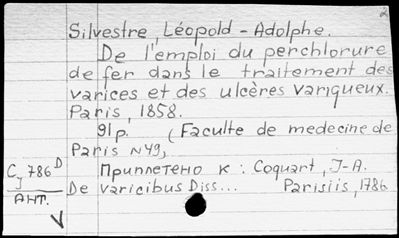 2
Silvestre, Léopold - Adolphe.
De l'emploi du perchlorure
de fer dans le traitement des
varices et des ulcères variqueux.
Paris, 1858.
91p. (Faculte de medecine de
Paris N49,
Приплетено к: Coquart, J-A.
De varicibus Diss... Parisiis, 1786
C 786 D
J
АНТ.
V